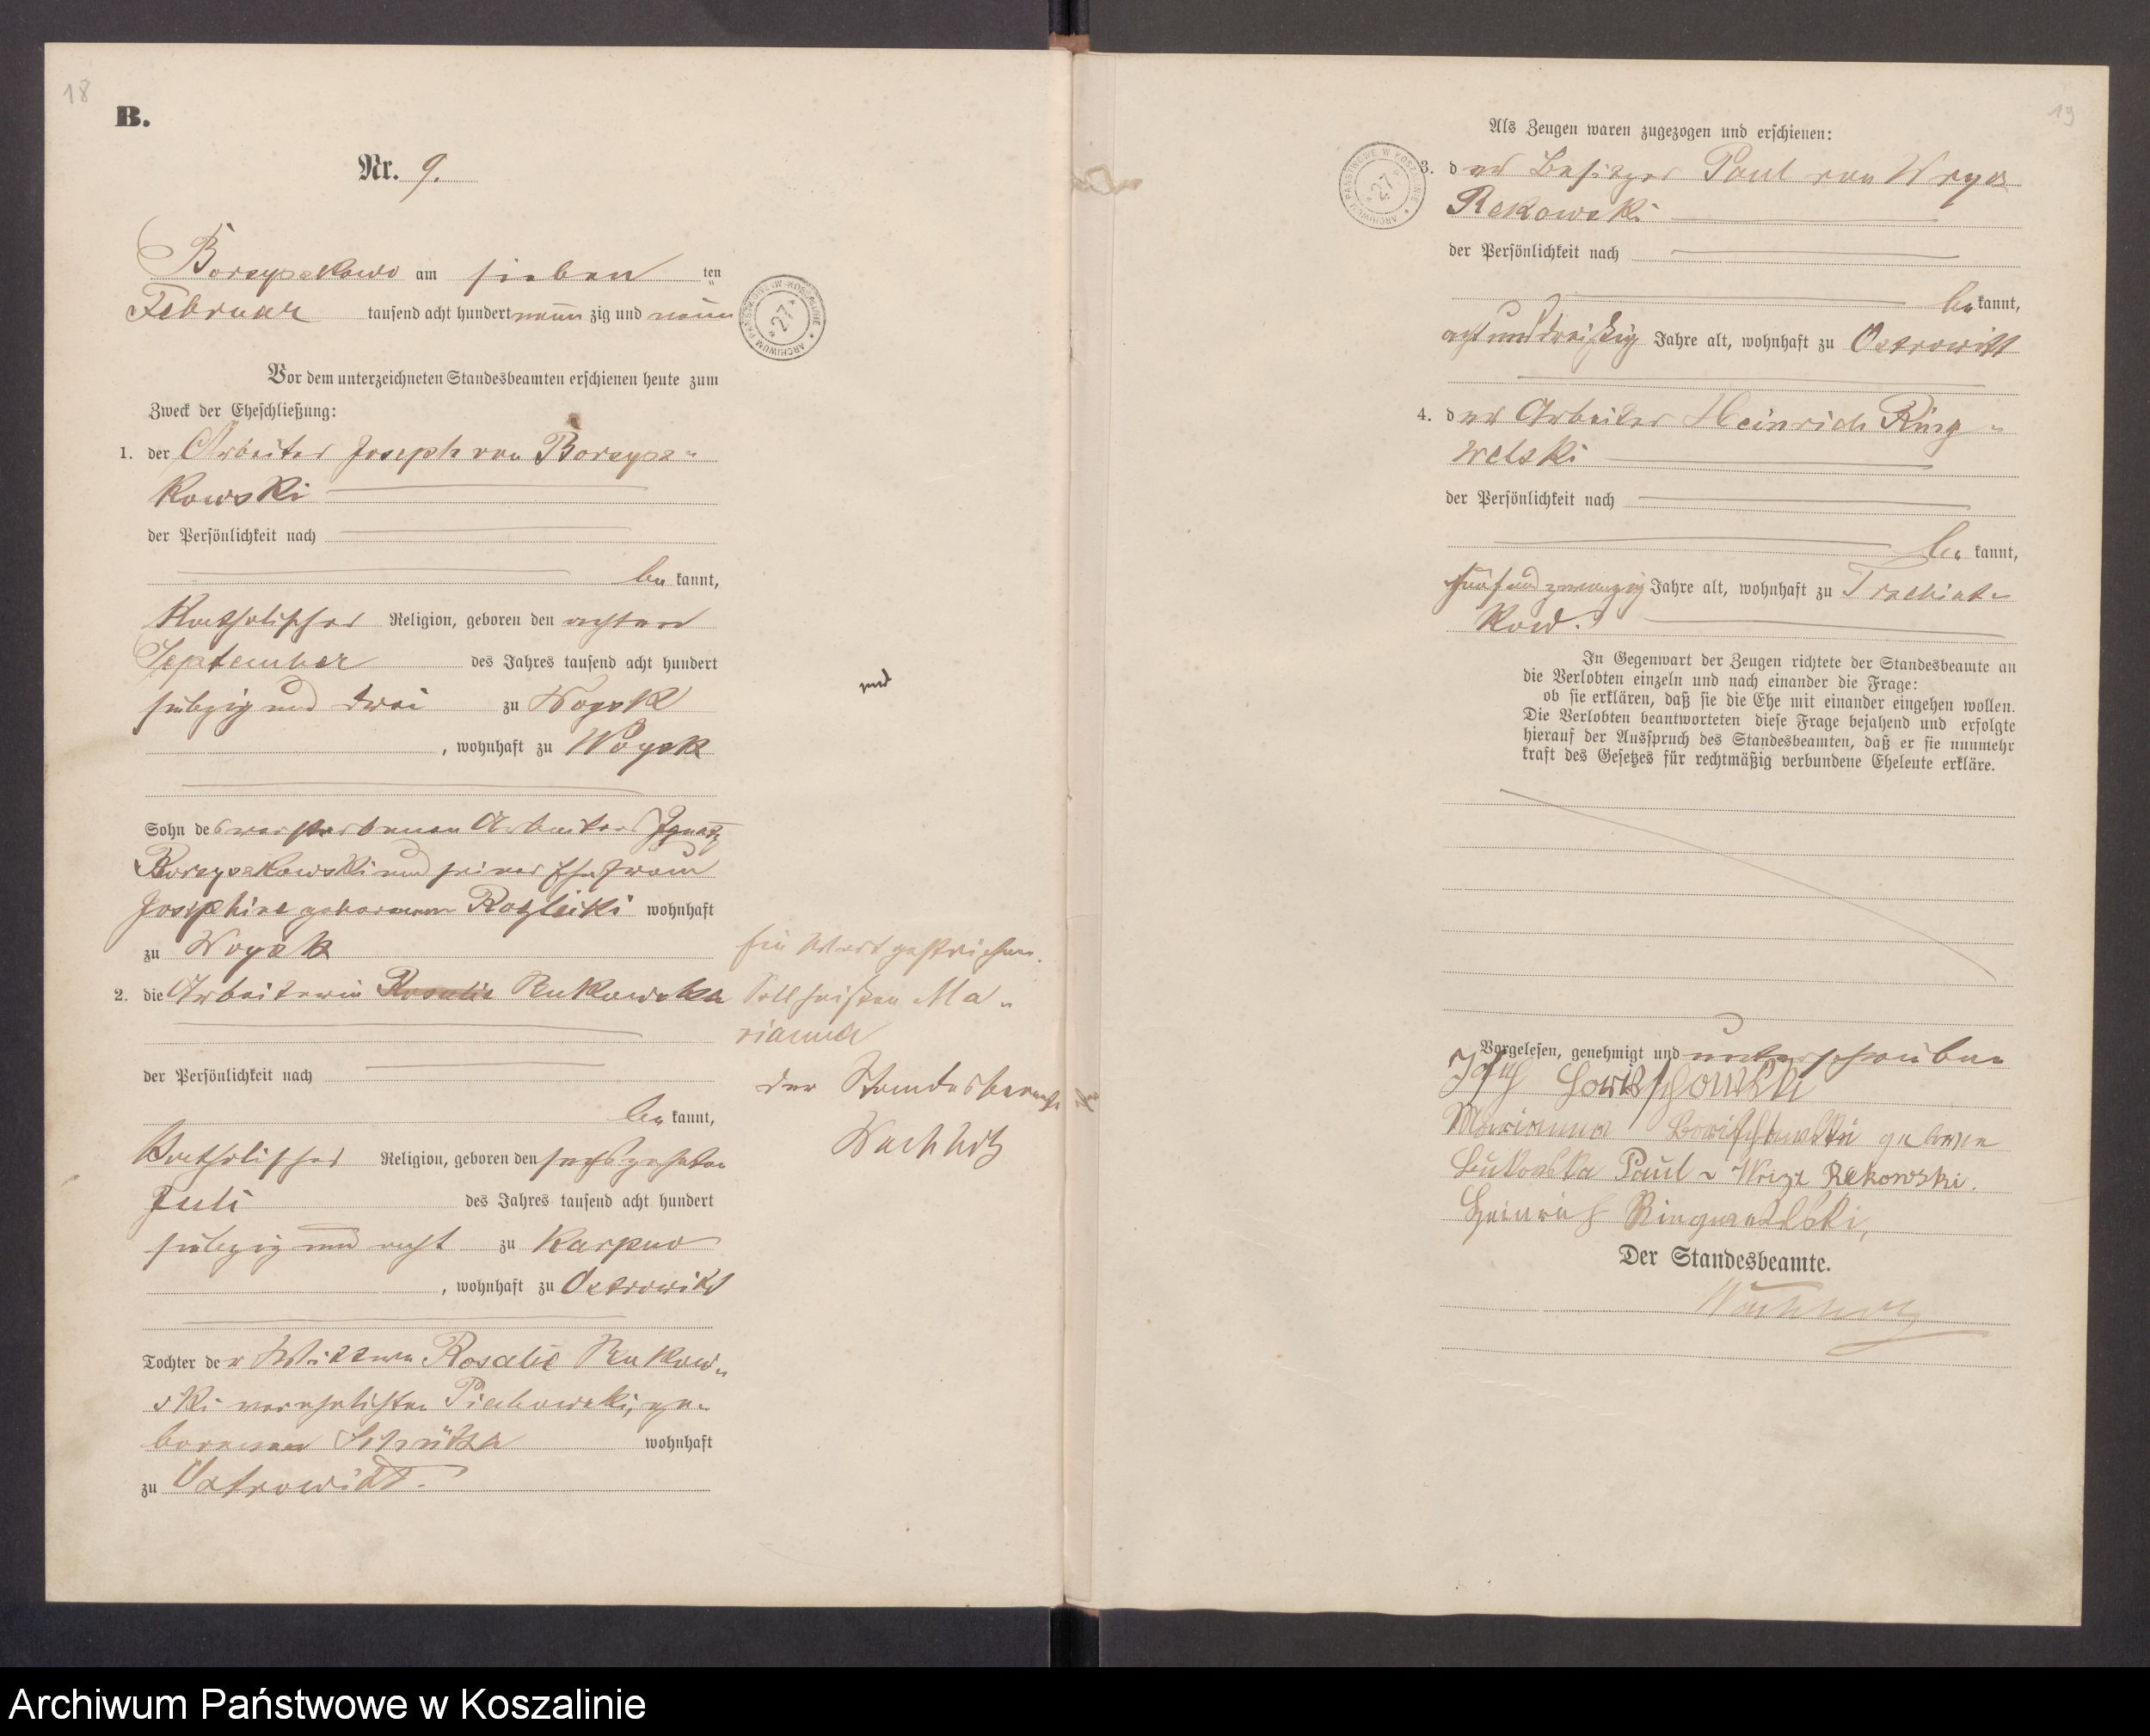 18
B.
Nr. 9.
Borzyszkowo am sieben ten
Februar tausend acht hundert neun zig und neun
Vor dem unterzeichneten Standesbeamten erschienen heute zum
Zweck der Eheschließung:
1. der Arbeiter Joseph von Borzysz-
kowski
der Persönlichkeit nach
be kannt,
Katholischer Religion, geboren den achten
September des Jahres tausend acht hundert
siebzig und drei zu Woysk
, wohnhaft zu Woysk
Sohn des verstorbenen Arbeiters Ignatz
Borzyszkowski und seiner Ehefrau
Josephine geborenen wohnhaft
zu Woysk
2. die Arbeiterin Rosalie Kukowska
der Persönlichkeit nach
be kannt,
Katholischer Religion, geboren den sechszehnten
Juli des Jahres tausend acht hundert
siebzig und acht zu Karpno
, wohnhaft zu Ostrowitt
Tochter der Wittwe Rosalie Kukow-
ski verehelichten Piechowski, ge-
borenen wohnhaft
zu Ostrowitt.
Ein Wort gestrichen.
Soll heißen Ma-
rianna
Der Standesbeamte
Wachholz
ARCHIWUM PAŃSTWOWE W KOSZALINIE
27
19
Als Zeugen waren zugezogen und erschienen:
3. der Besitzer Paul von Wrycz
Rekowski
der Persönlichkeit nach
be kannt,
acht und dreißig Jahre alt, wohnhaft zu Ostrowitt
4. der Arbeiter Heinrich Ring-
welski
der Persönlichkeit nach
be kannt,
fünf und zwanzig Jahre alt, wohnhaft zu Trzebiat-
kow.
In Gegenwart der Zeugen richtete der Standesbeamte an
die Verlobten einzeln und nach einander die Frage:
ob sie erklären, daß sie die Ehe mit einander eingehen wollen.
Die Verlobten beantworteten diese Frage bejahend und erfolgte
hierauf der Ausspruch des Standesbeamten, daß er sie nunmehr
kraft des Gesetzes für rechtmäßig verbundene Eheleute erkläre.
Vorgelesen, genehmigt und unterschrieben
Marianna geborene
Paul v Wrycz Rekowski.
Heinrich Ringwelski,
Der Standesbeamte.
Wachholz
ARCHIWUM PAŃSTWOWE W KOSZALINIE
27
Archiwum Państwowe w Koszalinie